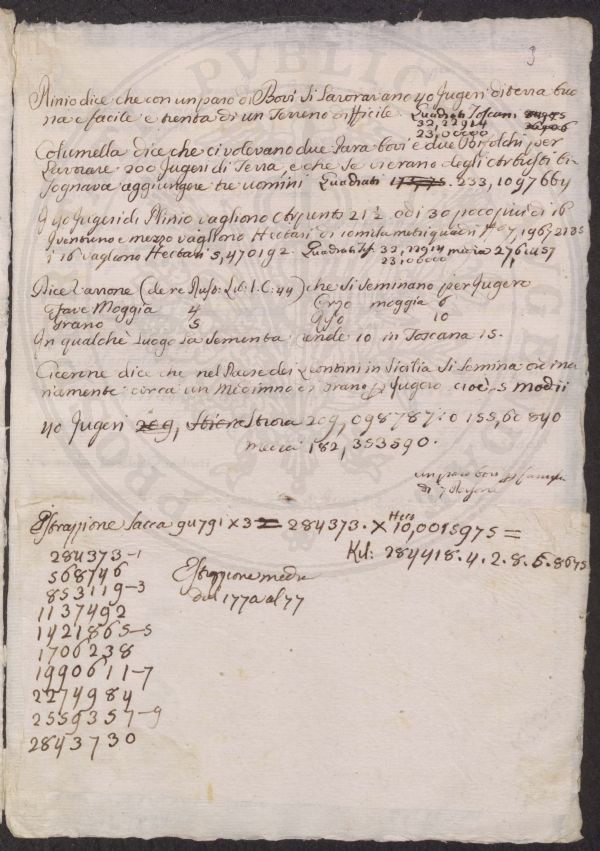 3
Plinio dice che con un paro di Bovi si lavoravano 40 Jugeri di terra buo
na e facile e trenta di un Terreno difficile. Quadrati Toscani
32,22914
23,00000
Columella dice che ci volevano due Para bovi e due Bifolchi per
Lavorare 200 Jugeri di Terra, e che se vi erano degli Arbusti bi-
sognava aggiungere tre uomini Quadrati 233,1097664
I 40 Jugeri di Plinio vagliono 21 1/2 o di 30 poco piu di 16
ventuno e mezzo vagliono Hectari
i 16 vagliono Hectari 5,470192. Quadrati 32,22914 media 276
23,00000
Dice Varrone (de re Rust: Lib: I. C: 44) che si seminano per Jugero
Fave Moggia 4 Orzo moggia 6
Grano 5 10
In qualche Luogo la Sementa rende 10 in Toscana 15.
Cicerone dice che nel Paese dei Leontini in Sicilia si semina ordina
riamente circa un Medimno di Grano per Jugero cioè 5 modii
40 Jugeri 209,098787:0 155,60840
media 182,353590.
un paro bovi famiglia
di 7 Persone
Estrazzione Sacca 94791 x 3 = 284373. x 10,0015975 =
Kil: 284418.4.2.8.6.8675
284373-1
568746
853119-3
1137492
1421865-5
1706238
1990611-7
2274984
2559357-9
2843730
Estrazzione media
dal 1770 al 77